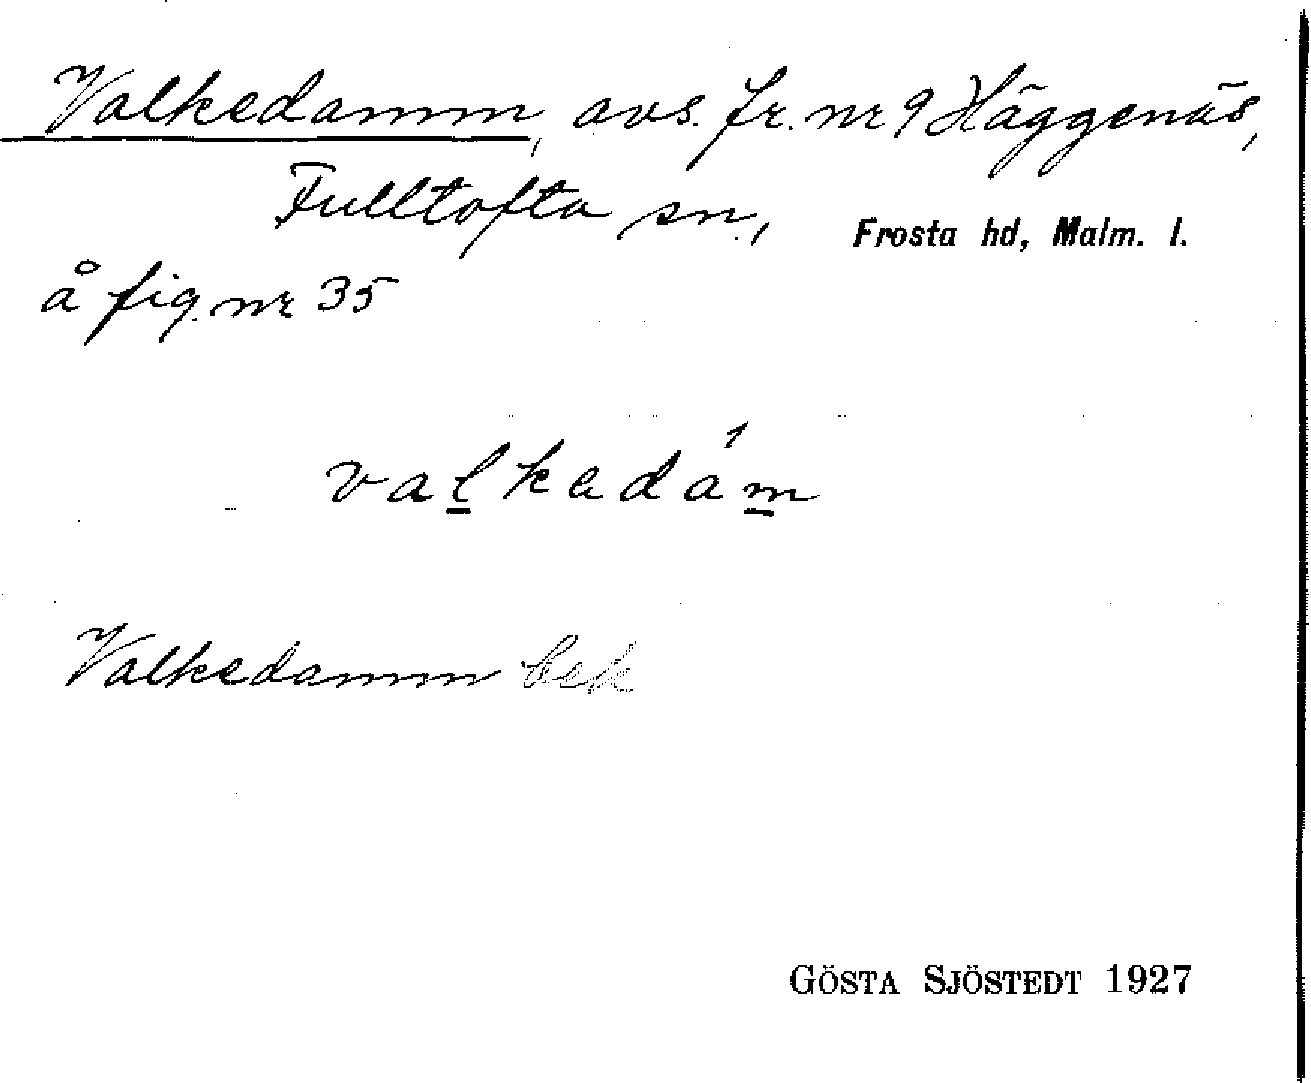 Valkedamm, avs. fr. nr 9 Häggenäs,
Fulltofta sn., Frosta hd, Malm. l.
å fig. nr 35
valkadám
Valkedamm bek
GÖSTA SJÖSTEDT 1927